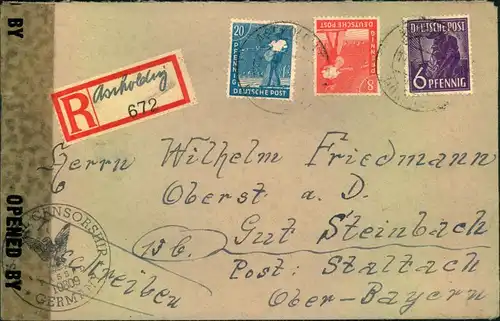 BY
OPENED BY
R
Ascholding
672
20
PFENNIG
DEUTSCHE POST
8
PFENNIG
DEUTSCHE POST
DEUTSCHE POST
6 PFENNIG
Herrn Wilhelm Friedmann
Oberst a. D.
13b. Gut Steinbach
Post: Staltach
Ober-Bayern
CENSORSHIP
GERMANY